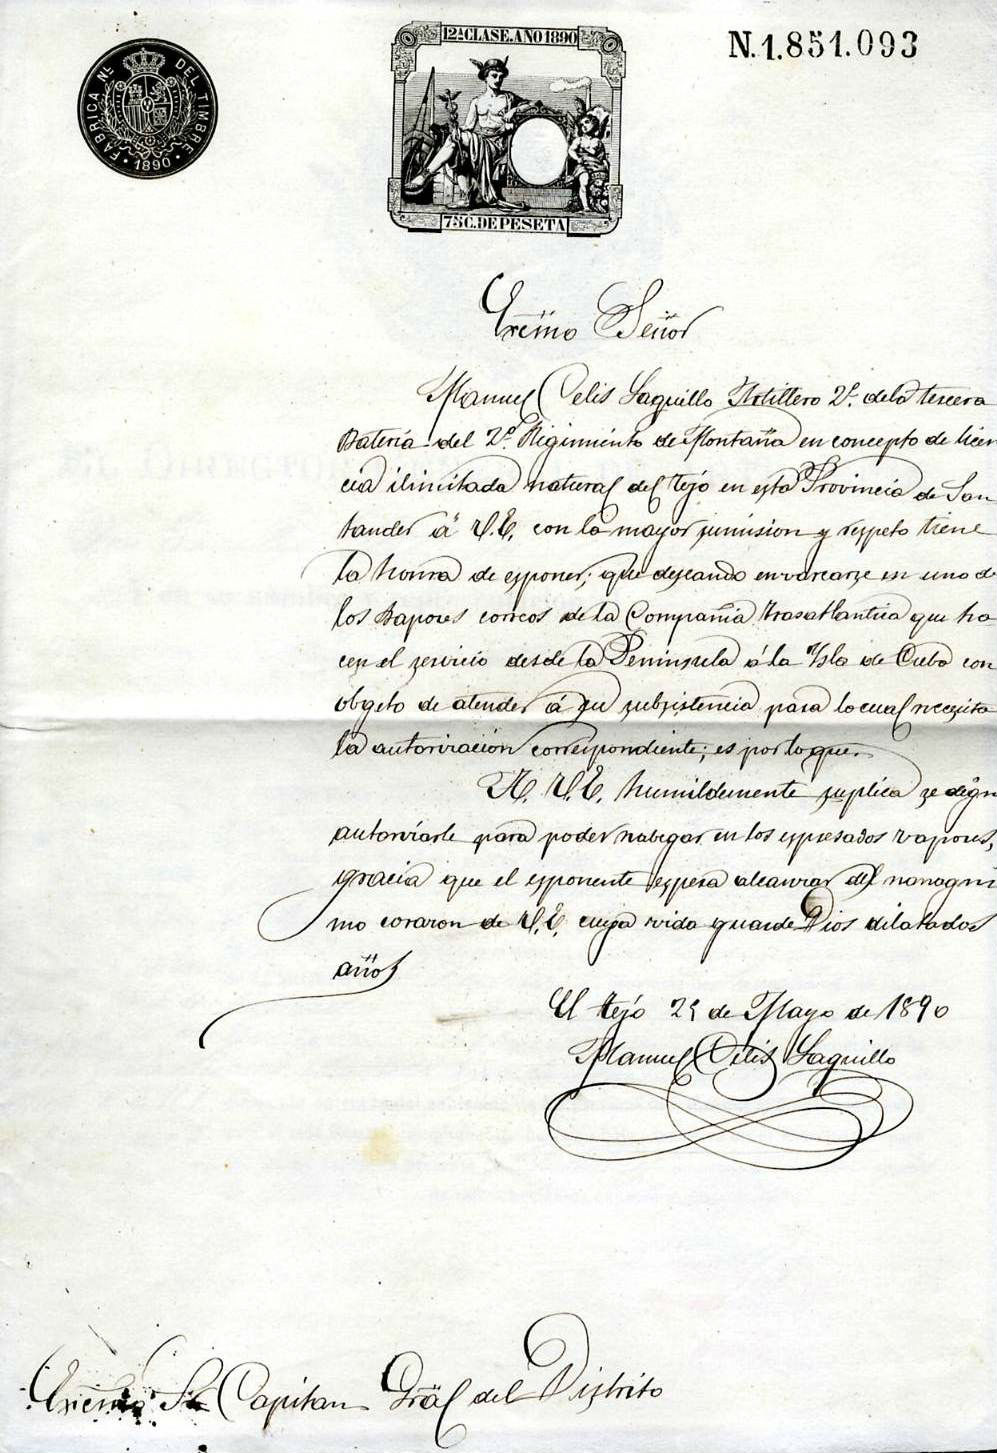 FÁBRICA NL. DEL TIMBRE
1890
12ª CLASE. AÑO 1890
75 C. DE PESETA
N.1.851.093
Excmo Señor
Manuel Celis Saguillo Artillero 2º. de la tercera
Bateria del 2º. Rigimiento de Montaña en concepto de licen
cia ilimitada natural del Tejo en esta Provincia de San
tander á V.E. con la mayor sumision y respeto tiene
la honra de esponer; que deseando envarcarze en uno de
los Bapores correos de la Compañia trasatlantica que ha
cen el servicio desde la Peninsula á la Ysla de Cuba con
obgeto de atender á su subsistencia para lo cual necesita
la autorización correspondiente; es por lo que.
A. V.E. humildemente suplica se digne
autoriarle para poder nabegar en los espresados vapores,
gracia que el esponente espera alcanzar del nanagni
mo corazon de V.E. cuya vida guarde Dios dilatados
años
El Tejo 25 de Mayo de 1890
Manuel Celis Saguillo
Excmo Sr Capitan Gral del Distrito